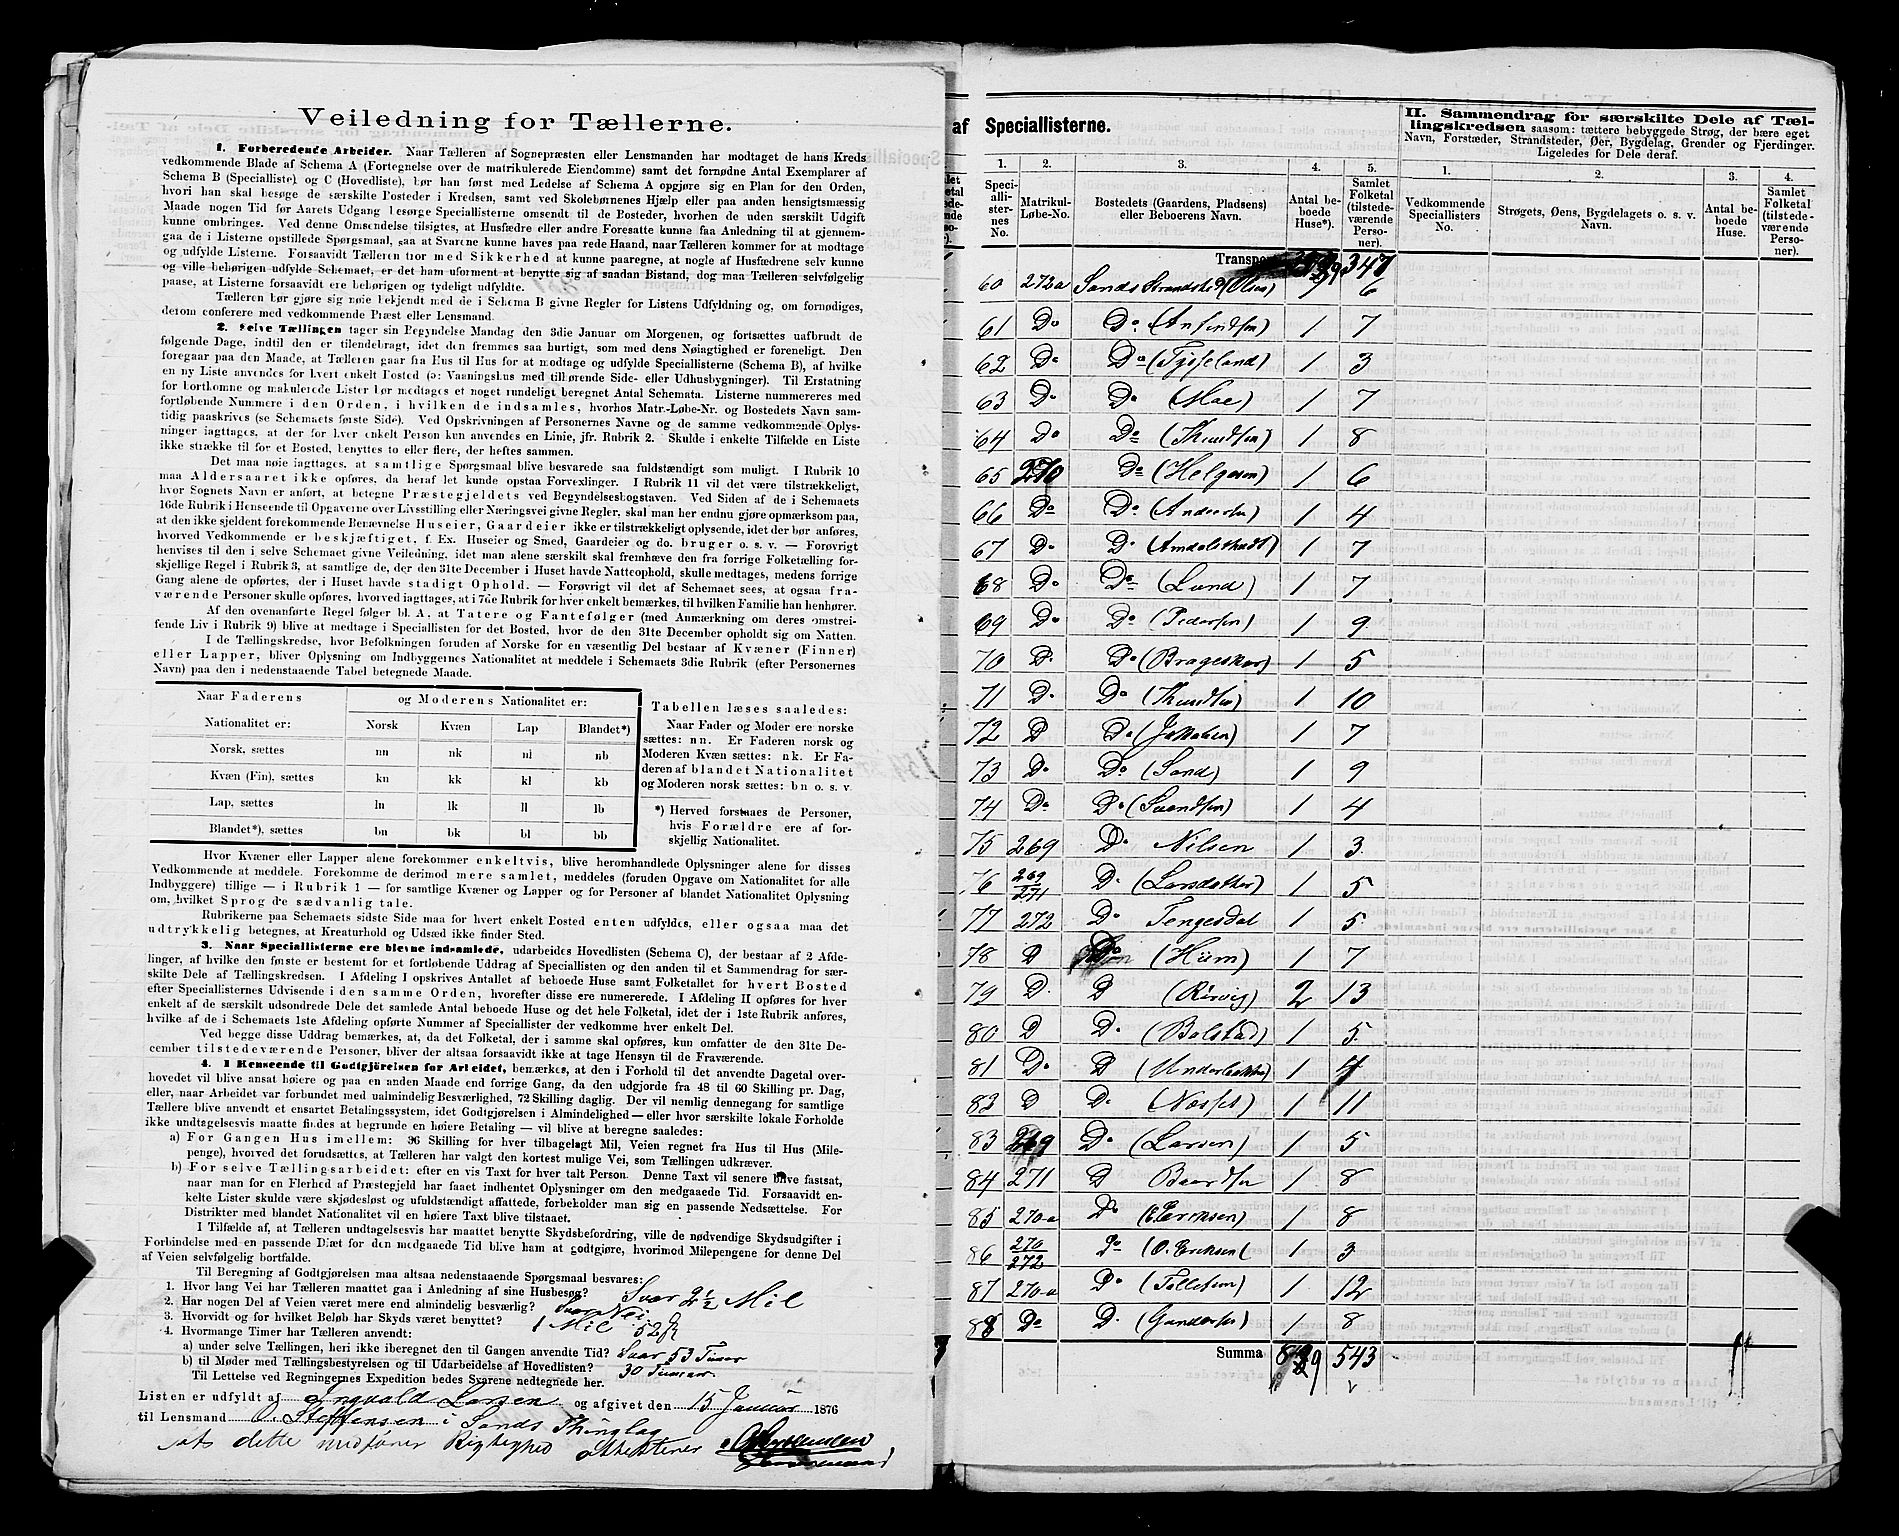 Veiledning for Tællerne.
1. Forberedende Arbeider. Naar Tælleren af Sognepræsten eller Lensmanden har modtaget de hans Kreds
vedkommende Blade af Schema A (Fortegnelse over de matrikulerede Eiendomme) samt det fornødne Antal Exemplarer af
Schema B (Specialliste) og C (Hovedliste), bør han først med Ledelse af Schema A opgjøre sig en Plan for den Orden,
hvori han skal besøge de særskilte Posteder i Kredsen, samt ved Skolebørnenes Hjælp eller paa anden hensigtsmæssig
Maade nogen Tid før Aarets Udgang besørge Speciallisterne omsendt til de Posteder, hvorhen de uden særskilt Udgift
kunne ombringes. Ved denne Omsendelse tilsigtes, at Husfædre eller andre Foresatte kunne faa Anledning til at gjennem-
gaa de i Listerne opstillede Spørgsmaal, saa at Svarene kunne haves paa rede Haand, naar Tælleren kommer for at modtage
og udfylde Listerne. Forsaavidt Tælleren tror med Sikkerhed at kunne paaregne, at nogle af Husfædrene selv kunne
og ville behørigen udfylde Schemaet, er det ham uforment at benytte sig af saadan Bistand, dog maa Tælleren selvfølgelig
paase, at Listerne forsaavidt ere behørigen og tydeligt udfyldte.
Tælleren bør gjøre sig nøie bekjendt med de i Schema B givne Regler for Listens Udfyldning og, om fornødiges,
derom conferere med vedkommende Præst eller Lensmand.
2. Selve Tællingen tager sin Begyndelse Mandag den 3die Januar om Morgenen, og fortsættes uafbrudt de
følgende Dage, indtil den er tilendebragt, idet den fremmes saa hurtigt, som med dens Nøiagtighed er foreneligt. Den
foregaar paa den Maade, at Tælleren gaar fra Hus til Hus for at modtage og udfylde Speciallisterne (Schema B), af hvilke
en ny Liste anvendes for hvert enkelt Bosted (ɔ: Vaaningshus med tilhørende Side- eller Udhusbygninger). Til Erstatning
for bortkomne og makulerede Lister bør medtages et noget rundeligt beregnet Antal Schemata. Listerne nummereres med
fortløbende Nummere i den Orden, i hvilken de indsamles, hvorhos Matr.-Løbe-Nr. og Bostedets Navn sam-
tidig paaskrives (se Schemaets første Side). Ved Opskrivningen af Personernes Navne og de samme vedkommende Oplys-
ninger iagttages, at der for hver enkelt Person kun anvendes en Linie, jfr. Rubrik 2. Skulde i enkelte Tilfælde en Liste
ikke strække til for et Bosted, benyttes to eller flere, der heftes sammen.
Det maa nøie iagttages, at samtlige Spørgsmaal blive besvarede saa fuldstændigt som muligt. I Rubrik 10
maa Aldersaaret ikke opføres, da heraf let kunde opstaa Forvexlinger. I Rubrik 11 vil det være tilstrækkeligt,
hvor Sognets Navn er anført, at betegne Præstegjeldets ved Begyndelsesbogstaven. Ved Siden af de i Schemaets
16de Rubrik i Henseende til Opgaverne over Livsstilling eller Næringsvei givne Regler, skal man her endnu gjøre opmærksom paa,
at den ikke sjeldent forekommende Benævnelse Huseier, Gaardeier ikke er tilstrækkeligt oplysende, idet der bør anføres,
hvorved Vedkommende er beskjæftiget, f. Ex. Huseier og Smed, Gaardeier og do. bruger o. s. v. — Forøvrigt
henvises til den i selve Schemaet givne Veiledning, idet man alene særskilt skal fremhæve den fra forrige Folketælling for-
skjellige Regel i Rubrik 3, at samtlige de, der den 31te December i Huset havde Natteophold, skulle medtages, medens forrige
Gang alene de opførtes, der i Huset havde stadigt Ophold. — Forøvrigt vil det af Schemaet sees, at ogsaa fra-
værende Personer skulle opføres, hvorved iagttages, at i 7de Rubrik for hver enkelt bemærkes, til hvilken Familie han henhører.
Af den ovenanførte Regel følger bl. A. at Tatere og Fantefølger (med Anmærkning om deres omstrei-
fende Liv i Rubrik 9) blive at medtage i Speciallisten for det Bosted, hvor de den 31te December opholdt sig om Natten.
I de Tællingskredse, hvor Befolkningen foruden af Norske for en væsentlig Del bestaar af Kvæner (Finner)
eller Lapper, bliver Oplysning om Indbyggernes Nationalitet at meddele i Schemaets 3die Rubrik (efter Personernes
Navn) paa den i nedenstaaende Tabel betegnede Maade.
Naar Faderens | og Moderens Nationalitet er:
Nationalitet er: | Norsk | Kvæn | Lap | Blandet*)
Norsk, sættes | nn | nk | nl | nb
Kvæn (Fin), sættes | kn | kk | kl | kb
Lap, sættes | ln | lk | ll | lb
Blandet*), sættes | bn | bk | bl | bb
Tabellen læses saaledes:
Naar Fader og Moder ere norske
sættes: nn. Er Faderen norsk og
Moderen Kvæn sættes: nk. Er Fa-
deren af blandet Nationalitet
og Moderen norsk sættes: bn o. s. v.
*) Herved forstaaes de Personer,
hvis Forældre ere af for-
skjellig Nationalitet.
Hvor Kvæner eller Lapper alene forekommer enkeltvis, blive heromhandlede Oplysninger alene for disses
Vedkommende at meddele. Forekomme de derimod mere samlet, meddeles (foruden Opgave om Nationalitet for alle
Indbyggere) tillige — i Rubrik 1 — for samtlige Kvæner og Lapper og for Personer af blandet Nationalitet Oplysning
om, hvilket Sprog de sædvanlig tale.
Rubrikerne paa Schemaets sidste Side maa for hvert enkelt Bosted enten udfyldes, eller ogsaa maa det
udtrykkelig betegnes, at Kreaturhold og Udsæd ikke finder Sted.
3. Naar Speciallisterne ere blevne indsamlede, udarbeides Hovedlisten (Schema C), der bestaar af 2 Afde-
linger, af hvilke den første er bestemt for et fortløbende Uddrag af Speciallisten og den anden til et Sammendrag for sær-
skilte Dele af Tællingskredsen. I Afdeling I opskrives Antallet af beboede Huse samt Folketallet for hvert Bosted
efter Speciallisternes Udvisende i den samme Orden, hvorefter disse ere numererede. I Afdeling II opføres for hver
enkelt af de særskilt udsondrede Dele det samlede Antal beboede Huse og det hele Folketal, idet der i 1ste Rubrik anføres,
hvilke af de i Schemaets 1ste Afdeling opførte Nummer af Speciallister der vedkomme hver enkelt Del.
Ved begge disse Uddrag bemærkes, at, da det Folketal, der i samme skal opføres, kun omfatter de den 31te De-
cember tilstedeværende Personer, bliver der altsaa forsaavidt ikke at tage Hensyn til de Fraværende.
4. I Henseende til Godtgjörelsen for Arbeidet, bemærkes, at den i Forhold til det anvendte Dagetal over-
hovedet vil blive ansat høiere og paa en anden Maade end forrige Gang, da den udgjorde fra 48 til 60 Skilling pr. Dag,
eller, naar Arbeidet var forbundet med ualmindelig Besværlighed, 72 Skilling daglig. Der vil nemlig dennegang for samtlige
Tællere blive anvendt et ensartet Betalingssystem, idet Godtgjörelsen i Almindelighed — eller hvor særskilte lokale Forholde
ikke undtagelsesvis maatte findes at begrunde en høiere Betaling — vil blive at beregne saaledes:
a) For Gangen Hus imellem: 96 Skilling for hver tilbagelagt Mil, Veien regnet fra Hus til Hus (Mile-
penge), hvorved det forudsættes, at Tælleren har valgt den kortest mulige Vei, som Tællingen udkræver.
b) For selve Tællingsarbeidet: efter en vis Taxt for hver talt Person. Denne Taxt vil senere blive fastsat,
naar man for en Flerhed af Præstegjeld har faaet indhentet Oplysninger om den medgaaede Tid. Forsaavidt en-
kelte Lister skulde være skjødesløst og ufuldstændigt affattede, forbeholder man sig en passende Nedsættelse. For
Distrikter med blandet Nationalitet vil en høiere Taxt blive tilstaaet.
I Tilfælde af, at Tælleren undtagelsesvis har maattet benytte Skydsbefordring, ville de nødvendige Skydsudgifter i
Forbindelse med en passende Diæt for den medgaaede Tid blive ham at godtgjøre, hvorimod Milepengene for denne Del
af Veien selvfølgelig bortfalde.
Til Beregning af Godtgjörelsen maa altsaa nedenstaaende Spørgsmaal besvares:
1. Hvor lang Vei har Tælleren maattet gaa i Anledning af sine Husbesøg? Svar 2 1/2 Mil
2. Har nogen Del af Veien været mere end almindelig besværlig? Svar Nei
3. Hvorvidt og for hvilket Beløb har Skyds været benyttet? 1 Mil 52
4. Hvormange Timer har Tælleren anvendt:
a) under selve Tællingen, heri ikke iberegnet den til Gangen anvendte Tid? Svar 53 Timer
b) til Møder med Tællingsbestyrelsen og til Udarbeidelse af Hovedlisten? 30 Timer
Til Lettelse ved Regningernes Expedition bedes Svarene nedtegnede her.
Listen er udfyldt af Ingvald Larsen og afgivet den 15 Januar 1876
til Lensmand O. Steffensen i Sands Thinglag
at dette medfører Rigtighed attesterer
af Speciallisterne.
1. | 2. | 3. | 4. | 5.
Speci-alli-ster-nes No. | Matrikul-Løbe-No. | Bostedets (Gaardens, Pladsens) eller Beboerens Navn. | Antal beboede Huse*). | Samlet Folketal (tilstede-værende Perso-ner).
II. Sammendrag for særskilte Dele af Tæl-
lingskredsen saasom: tættere bebyggede Strøg, der bære eget
Navn, Forstæder, Strandsteder, Øer, Bygdelag, Grender og Fjerdinger.
Ligeledes for Dele deraf.
1. | 2. | 3. | 4.
Vedkommende Speciallisters No. | Strøgets, Øens, Bygdelagets o. s. v. Navn. | Antal beboede Huse. | Samlet Folketal (tilstede-værende Perso-ner).
Transport 347
60 272a Sands Strandsted (Olsen) 1 6
61 Do Do (Anfindsen) 1 7
62 Do Do (Tysseland) 1 3
63 Do Do (Moe) 1 7
64 Do Do (Knudsen) 1 8
65 270 Do (Helgesen) 1 6
66 Do Do (Andersen) 1 4
67 Do Do 1 7
68 Do Do (Lund) 1 7
69 Do Do (Pedersen) 1 9
70 D. Do 1 5
71 Do Do (Knudsen) 1 10
72 D Do (Jakobsen) 1 7
73 Do Do (Sand) 1 9
74 Do Do (Svendsen) 1 4
75 269 Do Nilsen 1 3
76 269/271 D. (Larsdatter) 1 5
77 272 Do Tengesdal 1 5
78 D Do (Hiim) 1 7
79 D. D (Rørvig) 2 13
80 D D. (Bolstad) 1 5
81 Do D (Underbakke) 1 4
82 D D. 1 11
83 269 Do (Larsen) 1 5
84 271 D Baardsen 1 8
85 270a Do (E. Eriksen) 1 8
86 270/272 Do (O. Eriksen) 1 3
87 270a Do (Tollefsen) 1 12
88 Do D. (Gundersen) 1 8
Summa 89 543